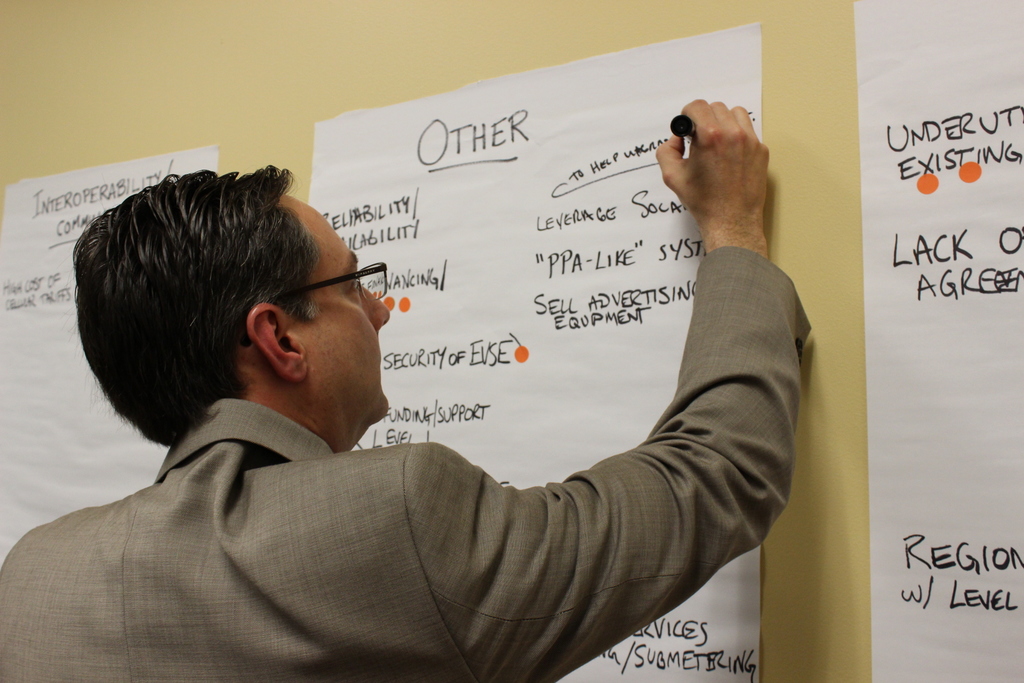 INTEROPERABILITY/
HIGH COST OF
CELLULAR TARIFFS
OTHER
RELIABILITY/
SECURITY OF EVSE
FUNDING/SUPPORT
LEVEL
TO HELP
LEVERAGE SOLA
"PPA-LIKE" SYST
SELL ADVERTISING
EQUPMENT
RVICES
/SUBMETERING
UNDERUT
EXISTING
LACK O
AGREEN
REGION
W/ LEVEL